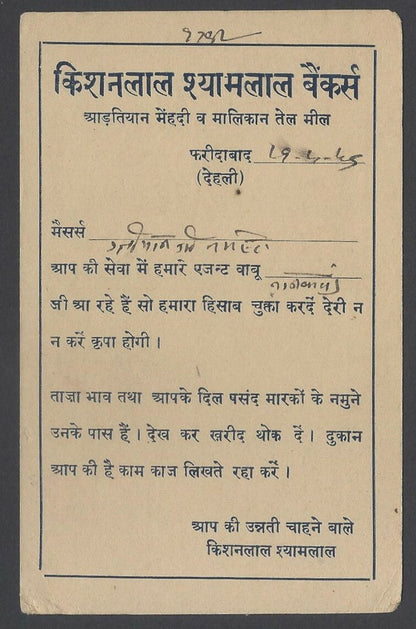 किशनलाल श्यामलाल बैंकर्स
आड़तियान मेंहदी व मालिकान तेल मील
फरीदाबाद
(देहली)
मैसर्स
आप की सेवा में हमारे एजन्ट बाबू
जी आ रहे हैं सो हमारा हिसाब चुकता करदें देरी न
न करें कृपा होगी ।
ताजा भाव तथा आपके दिल पसंद मारकों के नमुने
उनके पास हैं । देख कर खरीद थोक दें । दुकान
आप की है काम काज लिखते रहा करें ।
आप की उन्नती चाहने बाले
किशनलाल श्यामलाल